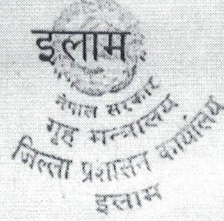 इलाम
नेपाल सरकार
गृह मन्त्रालय
जिल्ला प्रशासन कार्यालय
इलाम